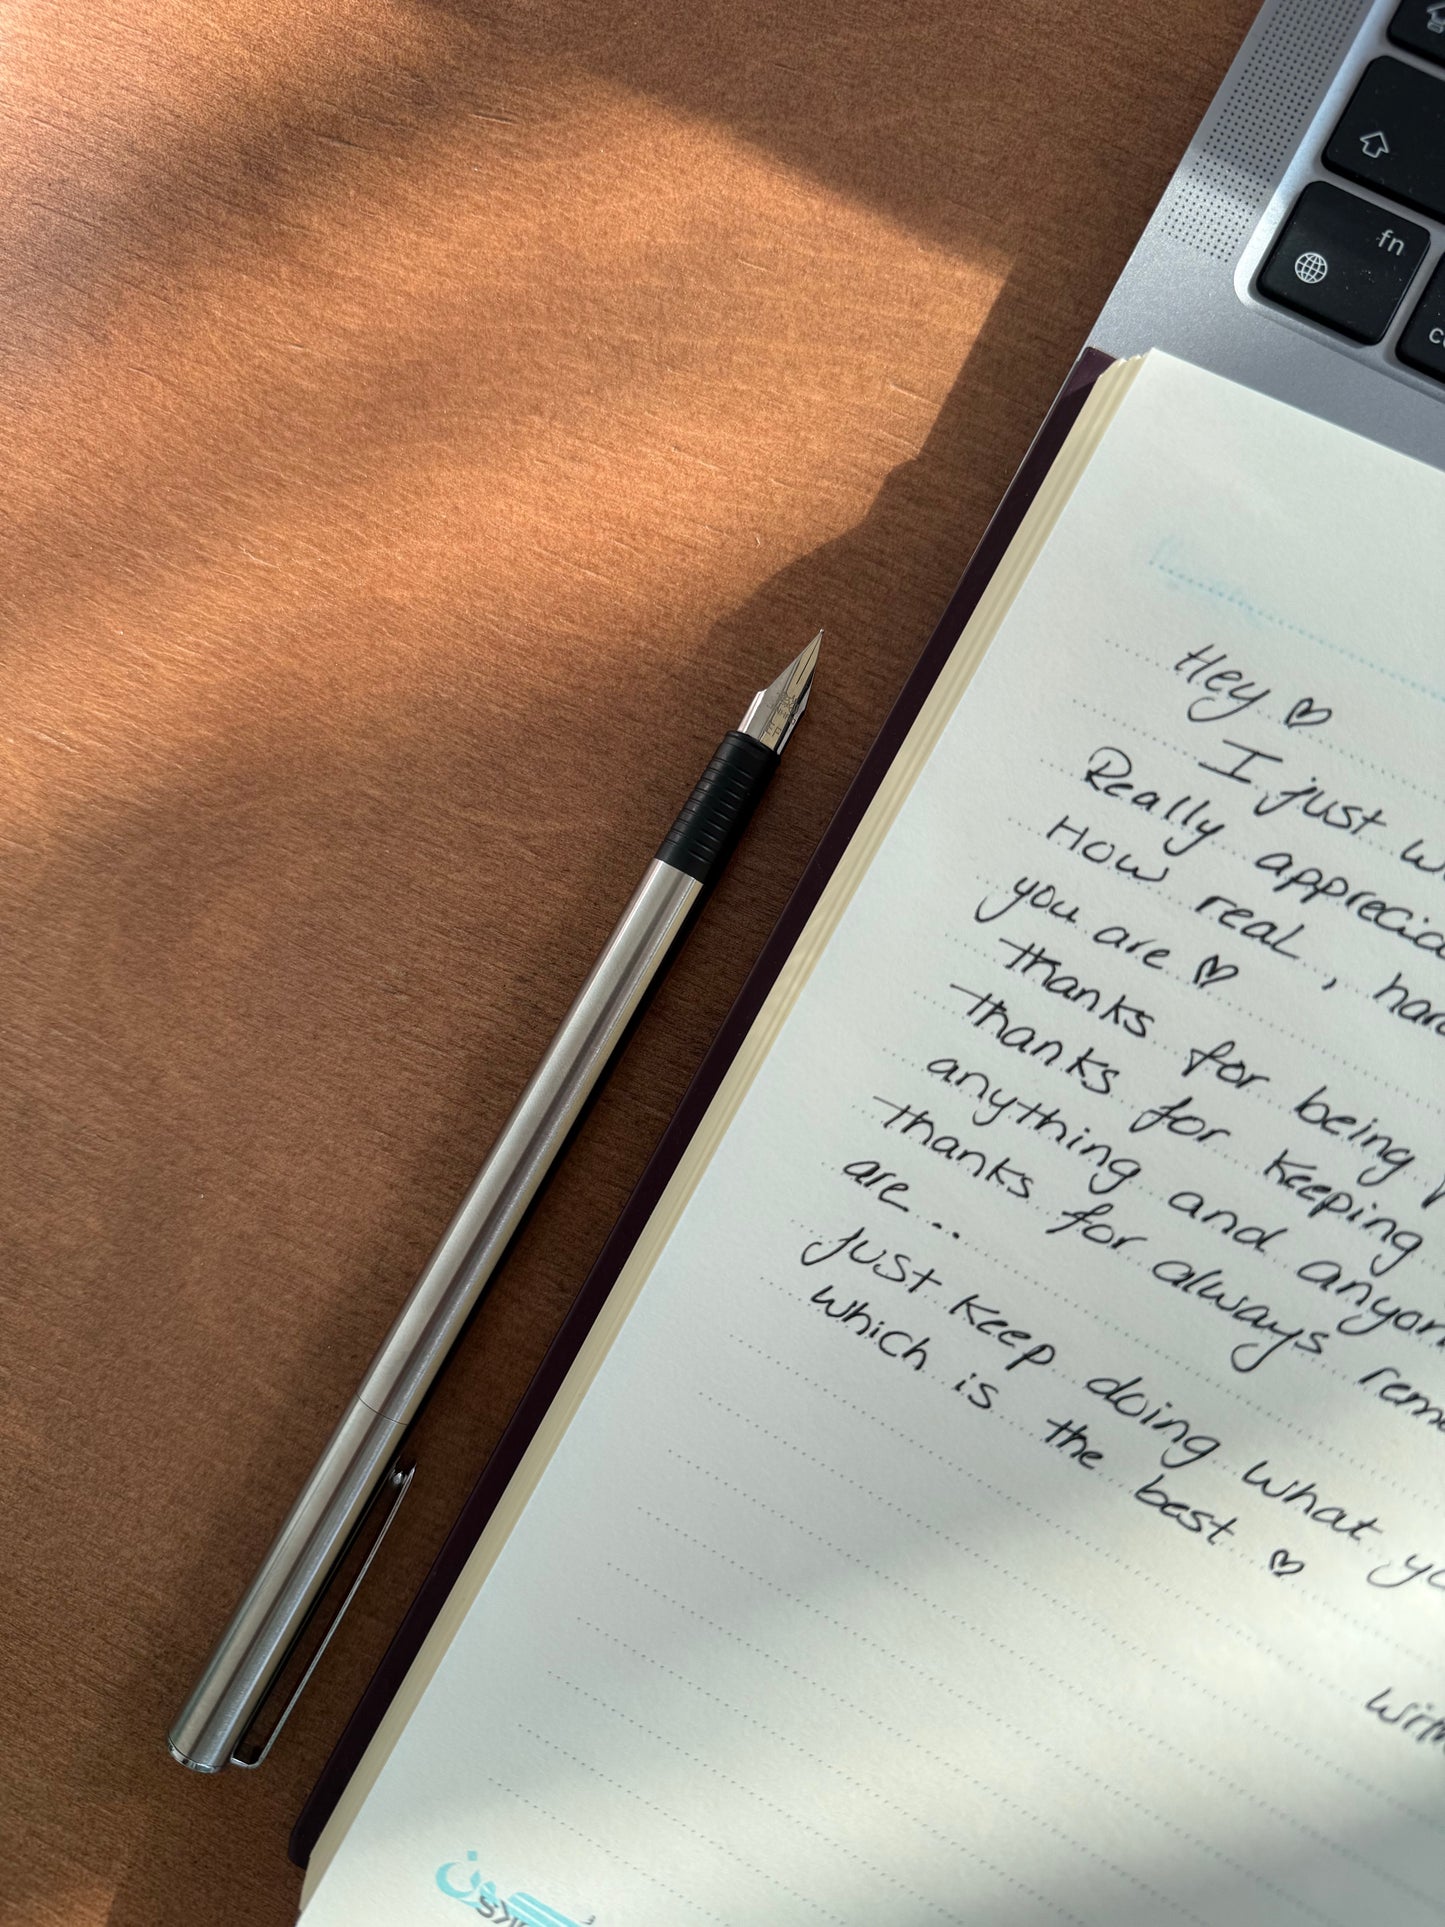 Hey ♡
I just
Really apprecia
How real, hard
you are ♡
thanks for being
thanks for keeping
anything and anyon
thanks for always rem
are..
just keep doing what yo
which is the best ♡
with
fn